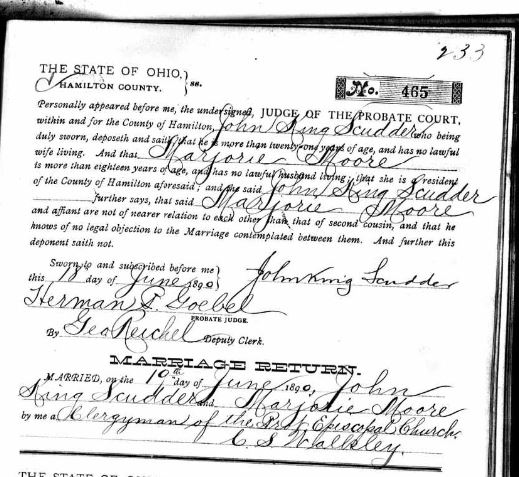 233
THE STATE OF OHIO, } ss.
HAMILTON COUNTY.
No. 465
Personally appeared before me, the undersigned, JUDGE OF THE PROBATE COURT,
within and for the County of Hamilton, John King Scudder who being
duly sworn, deposeth and saith, that he is more than twenty-one years of age, and has no lawful
wife living. And that Marjorie Moore
is more than eighteen years of age, and has no lawful husband living; that she is a resident
of the County of Hamilton aforesaid; and the said John King Scudder
further says, that said Marjorie Moore
and affiant are not of nearer relation to each other than that of second cousin, and that he
knows of no legal objection to the Marriage contemplated between them. And further this
deponent saith not.
Sworn to and subscribed before me
this 10 day of June 1890 } John King Scudder
Herman P. Goebel
PROBATE JUDGE.
By Geo Reichel Deputy Clerk.
MARRIAGE RETURN.
MARRIED, on the 10th day of June, 1890, John
King Scudder and Marjorie Moore
by me a Clergyman of the Prot Episcopal Church.
C. S. Walkley.
THE STATE OF OHIO